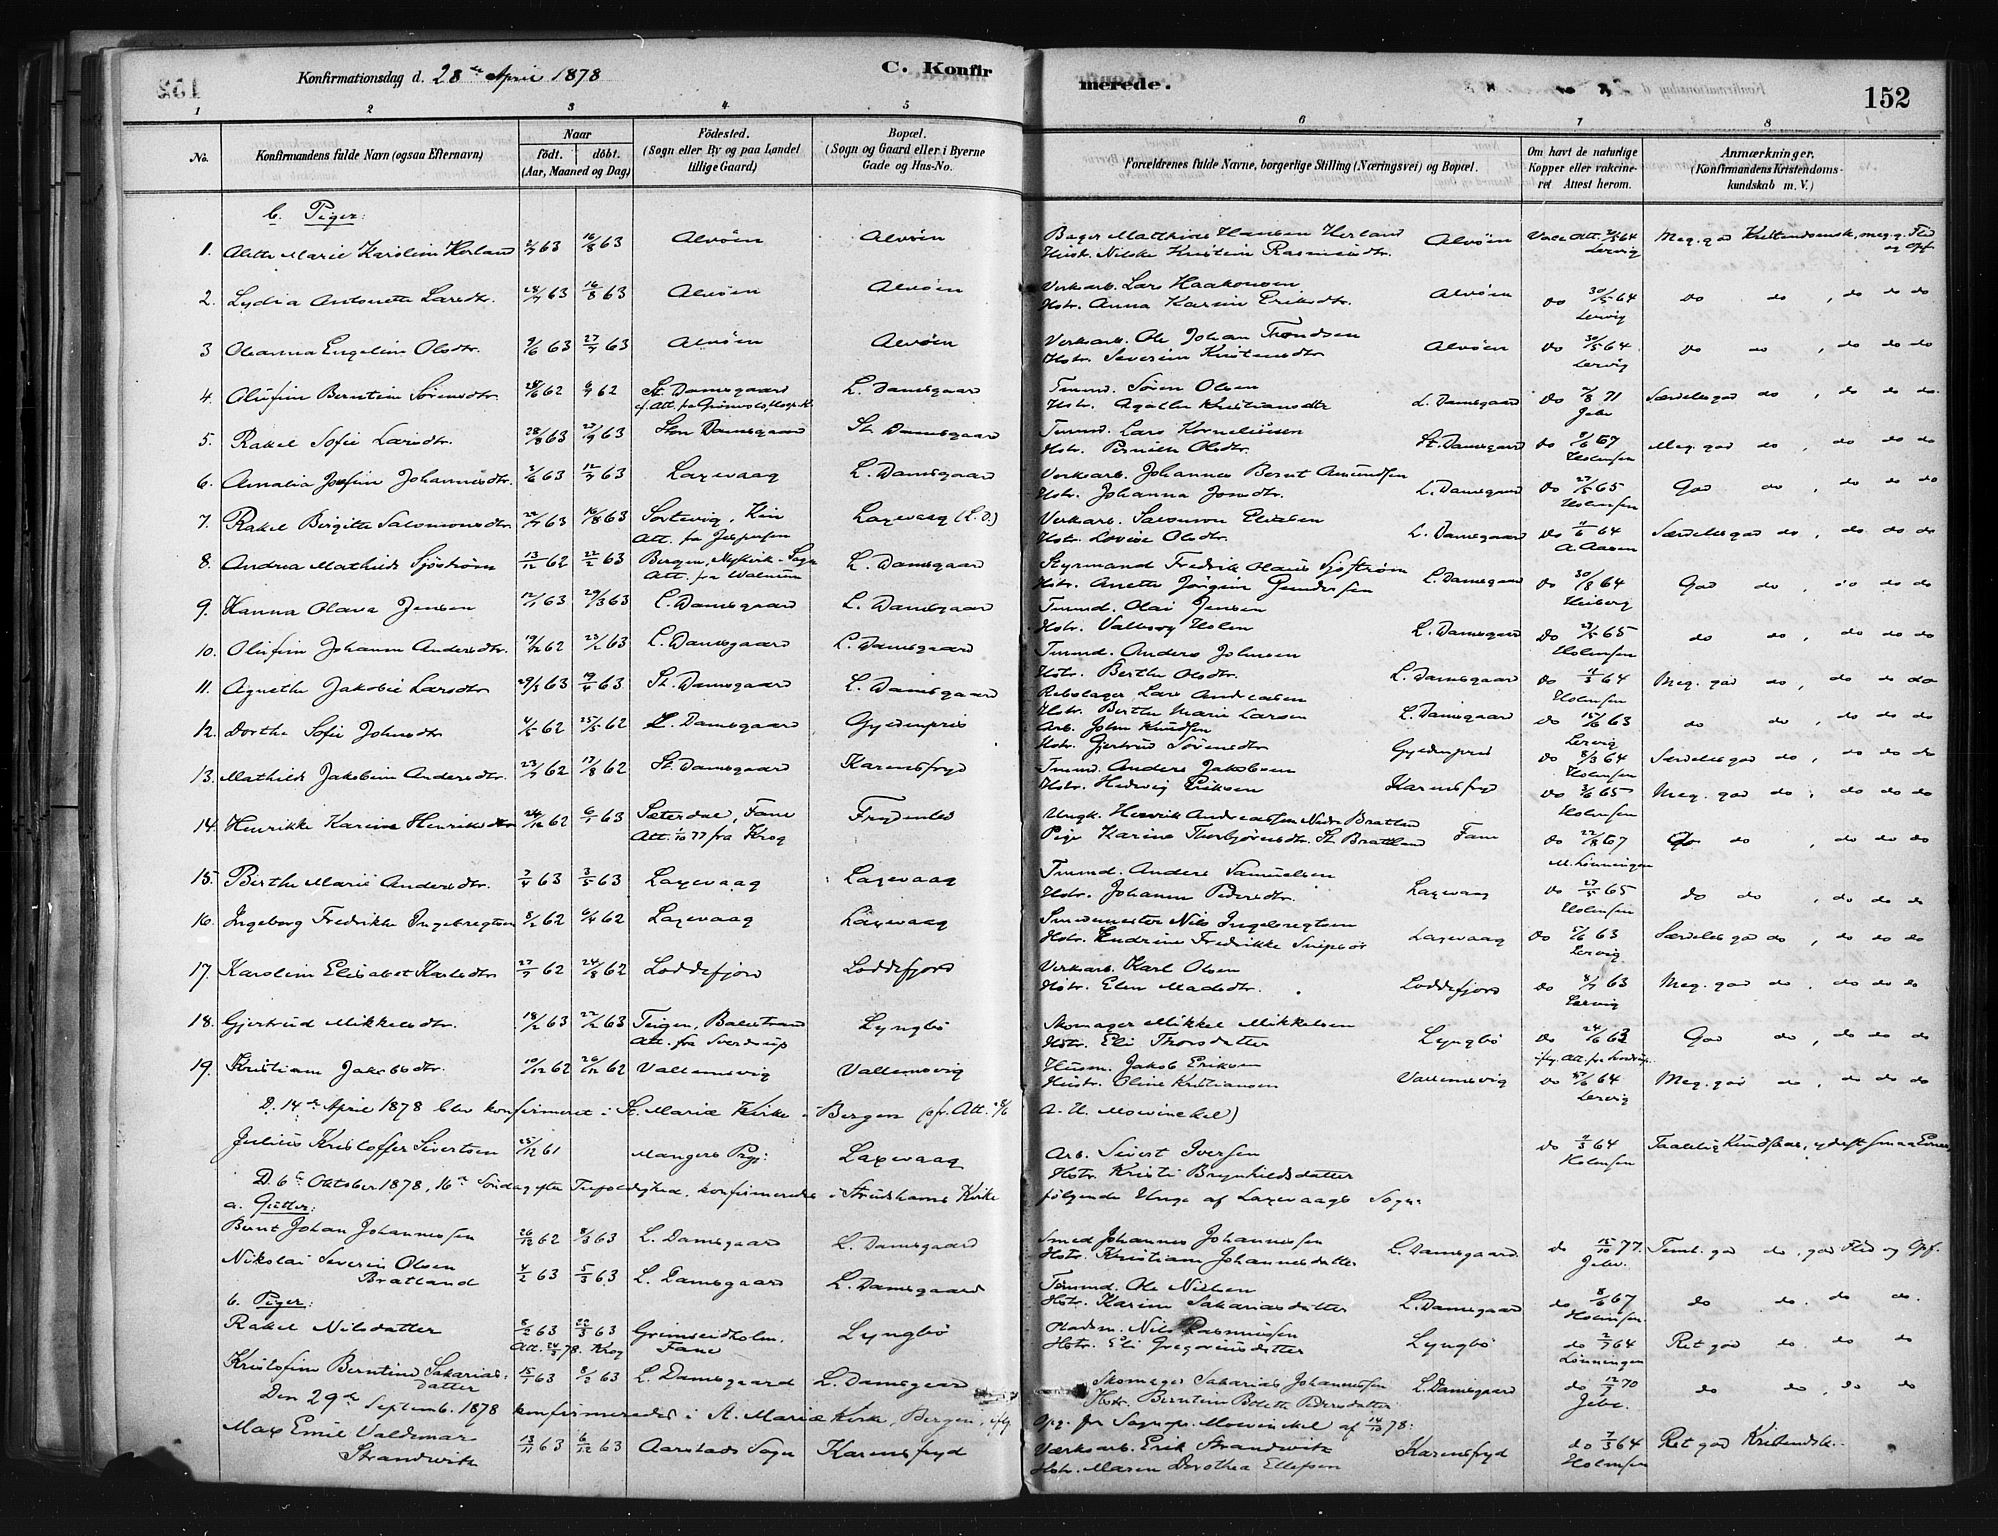 Konfirmationsdag d. 28de April 1878 C. Konfir merede. 152
1 2 3 4 5 6 7 8
No. Konfirmandens fulde Navn (ogsaa Efternavn) Naar födt. döbt. (Aar, Maaned og Dag) Födested. (Sogn eller By og paa Landet tillige Gaard) Bopæl. (Sogn og Gaard eller i Byerne Gade og Hus-No. Forældrenes fulde Navne, borgerlige Stilling (Næringsvei) og Bopæl. Om havt de naturlige Kopper eller vakcineret Attest herom. Anmærkninger. (Konfirmandens Kristendomskundskab m. V.)
b. Piger:
1. Alette Marie Karoline Herland 63 16/8 63 Alvöen Alvöen Bager Matthias Hansen Herland Alvöen Vacc. Att. 64 Meg. god Kristendomsk., meg g. Flid
Hustr. Nilske Kristine Rasmusdtr. Lervig og Opf.
2. Lydia Antonette Larsdtr. 28/7 63 16/8 63 Alvöen Alvöen Verksarb. Lars Haakonsen Alvöen do 30/5 64 do do, do do do
Hstr. Anna Karine Eriksdtr. Lervig
3 Oleanna Engeline Olsdtr. 9/6 63 27/7 63 Alvöen Alvöen Verksarb. Ole Johan Trondsen Alvöen do 30/5 64 do do, do do do
Hstr. Severine Kristensdtr Lervig
4. Olufine Berntine Sörensdtr. 62 62 St. Damsgaard L. Damsgaar Tmmd. Sören Olsen L. Damsgaard do 71 Særdeles god do, do do do.
Hstr. Agathe Kristiansdtr Jebe
5. Rakel Sofie Larsdtr. 28/8 63 27/9 63 Store Damsgaard St. Damsgaard Tmmd. Lars Korneliussen St. Damsgaard do 67 Meg. god do, do do do
Hstr. Pernille Olsdtr. Holmsen
6. Amalia Josefine Johannesdtr. 3/6 63 12/7 63 Laxevaag L. Damsgaard Verksarb. Johannes Bernt Amundsen L. Damsgaard do 27/5 65 God do, do do do
Hstr. Johanna Jonsdtr. Holmsen
7. Rakel Birgitte Salomonsdtr. 22/7 63 16/8 63 Laxevaag (L.D.) Verksarb. Salomon Eliasen L. Damsgaard do 64 Særdeles god do, do do do
Att. fra Jespersen Hstr. Lovise Olsdtr. A. Aasen
8. Andrea Mathilde Sjöström 13/12 62 22/2 63 Bergen, Nykirk-Sogn L. Damsgaard Styrmand Fredrik Olaus Sjöström L. Damsgaard do 30/8 64 God do, do do do
Att. fra Walnum Hstr. Anette Jörgine Gundersen Heiberg
9. Hanna Olava Jensen 12/1 63 29/3 63 L. Damsgaard L. Damsgaard Tmmd. Olai Jensen
Hstr. Valborg Holm L. Damsgaard do 65 do do, do do do
10. Olufine Johanne Andersdtr. 19/12 62 23/2 63 L. Damsgaard L. Damsgaard Tmmd. Anders Johnsen Holmsen
Hstr. Berthe Olsdtr. L. Damsgaard do 64 Meg. god do, do do do
11. Agnethe Jakobie Larsdtr 29/3 63 19/4 63 St. Damsgaard L. Damsgaard Rebslager Lars Andreasen Holmsen
Hstr. Berthe Marie Larsen L. Damsgaard do 63 do do, do do do
12. Dorthe Sofie Johnsdtr 4/5 62 25/5 62 L. Damsgaard Gyldenpris Arb. John Knudsen Lervig
Hstr. Gjertrud Sörensdtr Gyldenpris do 8/3 64 Særdeles god do, do do do
13. Mathilde Jakobine Andersdtr. 23/7 62 17/8 62 St. Damsgaard Karensfryd Tmmd. Anders Jakobsen Holmsen
Hstr. Hedvig Eriksen Karensfryd do 3/6 65 Meg. god do, do do do
14. Henrikke Karine Henriksdtr 24/12 62 6/1 63 Sæterdal, Fane Frydenlid Ungk. Henrik Andreassen Nedr. Bratland Holmsen
Att. 1/10 77 fra Krog Pige Karine Thorbjörnsdtr. St. Bratland Fane do 22/8 67 do, do do do
M. Lönningen
15. Berthe Marie Andersdtr. 7/4 63 3/5 63 Laxevaag Laxevaag Tmmd. Anders Samuelsen
Hstr. Johanne Pedersdtr. Laxevaag do 27/5 65 do do, do do do
Holmsen
16. Ingeborg Fredrikke Ingebregtsen 8/2 62 6/4 62 Laxevaag Laxevaag Smedemester Nils Ingebregtsen
Hstr. Endrine Fredrikke Laxevaag do 5/6 63 Særdeles god do, do do do
Lervig
17. Karoline Elisabet Karlsdtr 27/7 62 24/8 62 Loddefjord Loddefjord Verksarb. Karl Olsen
Hstr. Elen Madsdtr. Loddefjord do 63 Meg. god do, do do do
Lervig
18. Gjertrud Mikkelsdtr. 18/2 63 22/2 63 Teigen, Balestrand Lyngbö Skomager Mikkel Mikkelsen
Att. fra Sverdrup Hstr. Eli Thorsdatter Lyngbö do 24/6 63 God do, do do do
19. Kristiane Jakobsdtr. 10/12 62 26/12 62 Vallemsvig Vallemsvig Husm. Jakob Eriksen
Hustr. Oline Kristiansen Vallemsvig do 64 Meg. god do, do do do
Lervig
D. 14de April 1878 blev konfirmeret i St. Mariæ Kirke i Bergen (cfr. Att. 8/6 A. U. Mowinckel)
Julius Kristoffer Sivertsen 25/12 61 Mangers Prgj: Laxevaag Arb. Sivert Iversen do 64 Taalelig Kundskab,
Hstr. Kristi Brynhildsdatter Holmsen
D. 6te Oktober 1878, 16de Söndag efter Trefoldighed, konfirmeredes i Strudshavns Kirke fölgende Unge af Laxevaags Sogn:
a. Gutter:
Bernt Johan Johannessen 26/12 62 8/3 63 L. Damsgaard L. Damsgaard Smed Johannes Johannessen
Hstr. Kristiane Johannesdatter L. Damsgaard do 15/10 77. Teml. god do, god Flid og Opf.
Jebe.
Nikolai Severin Olsen 4/2 63 5/3 63 L. Damsgaard L. Damsgaard Tmmd. Ole Nielsen
Bratland Hstr. Karine Sakariasdatter L. Damsgaard do 8/6 67 do do. do do.
Holmsen
b. Piger:
Rakel Nilsdatter 8/2 63 22/3 63 Grimseidholm. Lyngbö Nils Rasmussen
Att. 24/5 78. Krog Fane Hstr. Eli Gregoriusdatter Lyngbö do 64 Ret god do. do do
Lönningen
Kristofine Berntine Sakarias- 15/1 63 8/3 63 L. Damsgaard L. Damsgaar Skomager Sakarias Johannessen L. Damsgaard do 12/7 70 do do, do do
datter Hstr. Berntine Bolette Pedersdatter Jebe.
Den 29de Septemb. 1878 konfirmeredes i St. Mariæ Kirke, Bergen, iflg. Opg. fra Sognepr. Mowinckel af 14/10 78:
Max Emil Valdemar 13/11 63 6/12 63 Aarstads Sogn Karensfryd Værksarb. Erik Strandwik Karensfryd do 64 Ret god Kristendsk.
Strandwik Hstr. Maren Dorothea Ellefsen Holmsen